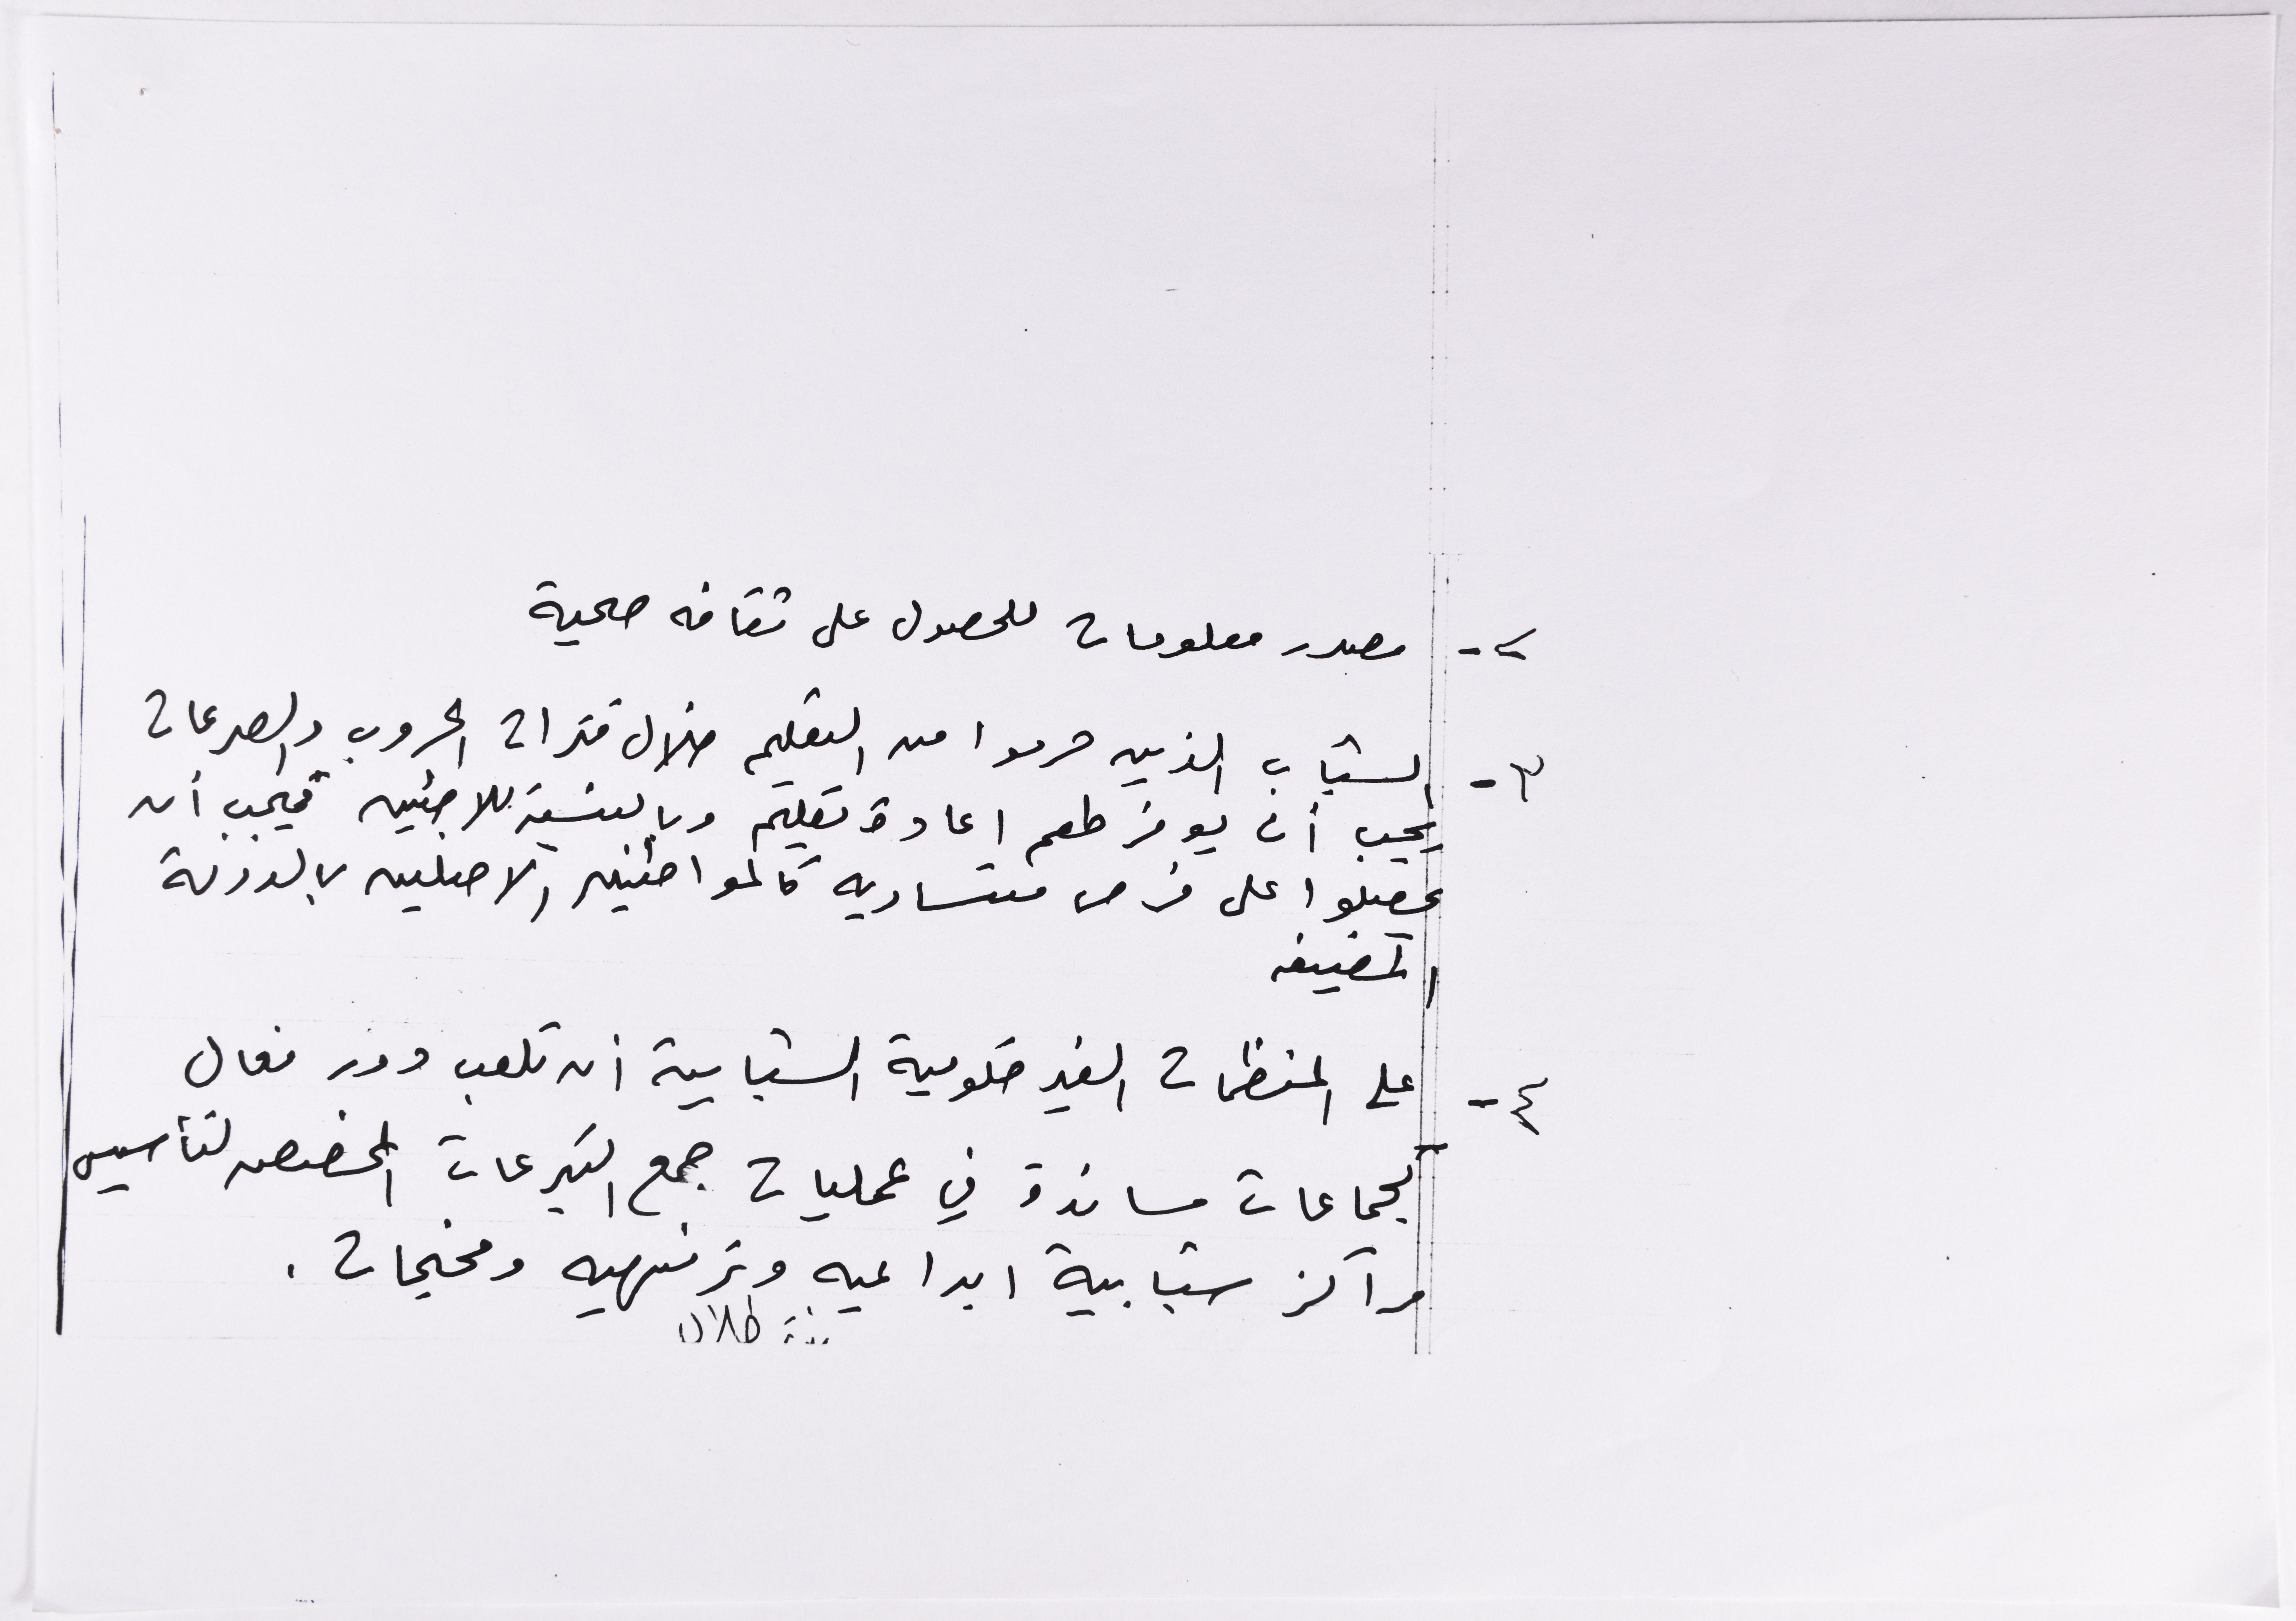 ٢- مصدر معلومات للحصول على ثقافه صحية
٣- الشباب الذين حرموا من التعليم خلال فترات الحروب والصرعات
يجب أن يوفر لهم اعادة تعليم وبالنسبة للاجئين فيجب أن
يحصلوا على فرص متساويه كالمواطنين الاصليين بالدولة
المضيفه
٤- على المنظمات الغير حكومية الشبابية أن تلعب دور فعال
كجماعات مساندة في عمليات جمع التبرعات المخصصه لتأسيس
مراكز شبابية ابداعيه وترفيهيه ومخيمات .